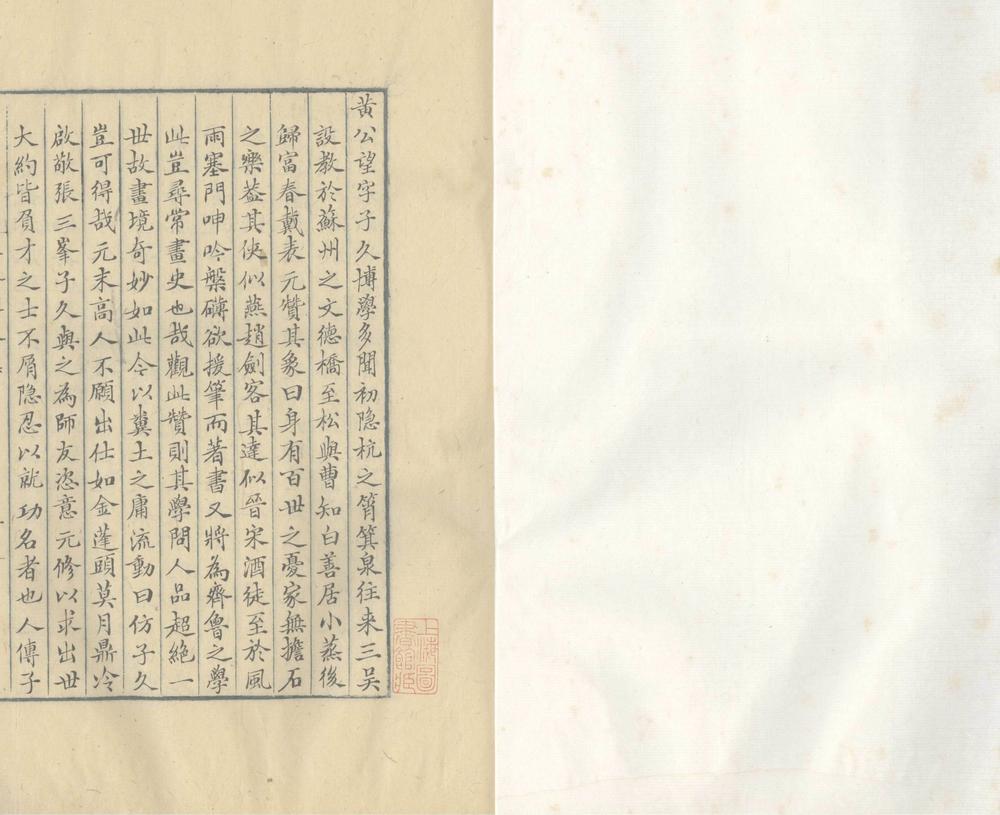 黄公望字子久博學多聞初隐杭之筲箕泉往来三吴
設教於蘇州之文德橋至松與曹知白善居小蒸後
歸富春戴表元贊其象曰身有百世之憂家無擔石
之樂葢其俠似燕趙劍客其達似晉宋酒徒至於風
雨塞門呻吟槃礴欲援筆而著書又將為齊魯之學
此豈尋常畫史也哉觀此贊則其學問人品超絶一
世故畫境奇妙如此今以糞土之庸流動曰仿子久
豈可得哉元末高人不願出仕如金蓬頭莫月鼎冷
啟敬張三峯子久與之為師友恣意元修以求出世
大約皆負才之士不屑隐忍以就功名者也人傳子
上海圖
書館藏